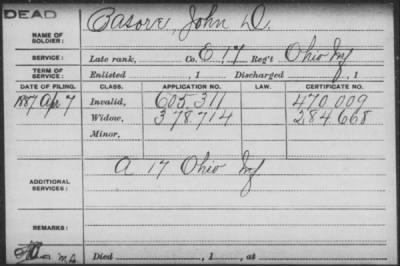 DEAD
NAME OF SOLDIER: Basore, John D.
SERVICE: Late rank, Co. E 17 Reg't Ohio Inf
TERM OF SERVICE: Enlisted , 1 Discharged , 1
DATE OF FILING. CLASS. APPLICATION NO. LAW. CERTIFICATE NO.
1887 Apr 7 Invalid, 605.311 470.009
Widow, 378.714 284668
Minor,
ADDITIONAL SERVICES: A 17 Ohio Inf
REMARKS:
Died , 1 , at